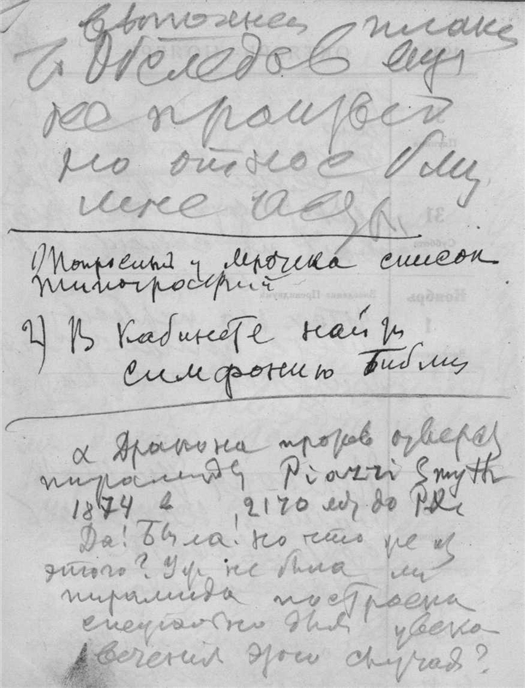 и обследов
не произвел
но отнес
мне
1) Попросить у список
типографий
2) В Кабинете найти
симфонию Библии
α Дракона против отверст
пирамиды Piazzi Smyth
1874 в 2170 лет до РХ
Да! Была! но что же из
этого? Уж не была ли
пирамида построена
специально для увеко
вечения этого случая?